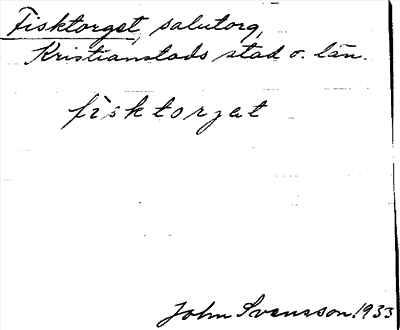 Fisktorget, salutorg,
Kristianstads stad o. län.
fìsktorjat
John Svensson 1933